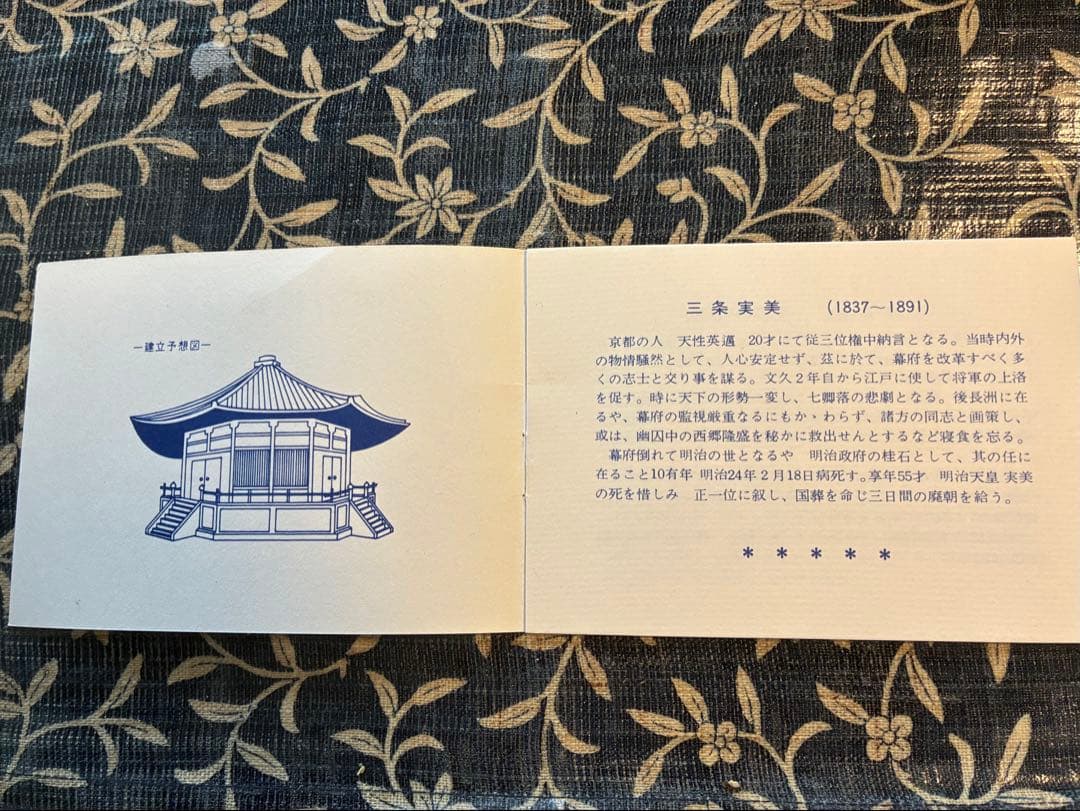 ―建立予想図―
三条実美 (1837~1891)
京都の人 天性英邁 20才にて従三位権中納言となる。当時内外
の物情騒然として、人心安定せず、茲に於て、幕府を改革すべく多
くの志士と交り事を謀る。文久2年自から江戸に使して将軍の上洛
を促す。時に天下の形勢一変し、七卿落の悲劇となる。後長洲に在
るや、幕府の監視厳重なるにもかゝわらず、諸方の同志と画策し、
或は、幽囚中の西郷隆盛を秘かに救出せんとするなど寝食を忘る。
幕府倒れて明治の世となるや 明治政府の桂石として、其の任に
在ること10有年 明治24年2月18日病死す。享年55才 明治天皇 実美
の死を惜しみ 正一位に叙し、国葬を命じ三日間の廃朝を給う。
* * * * *